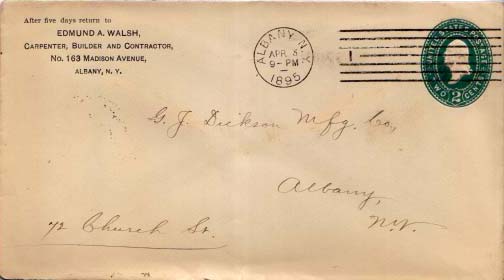 After five days return to
EDMUND A. WALSH,
CARPENTER, BUILDER AND CONTRACTOR,
No. 163 MADISON AVENUE,
ALBANY, N. Y.
ALBANY, N.Y.
APR 5
9-PM
1895
1
UNITED STATES POSTAGE
TWO 2 CENTS
G. J. Dickson Mfg. Co,
Albany,
N.Y.
72 Church St.